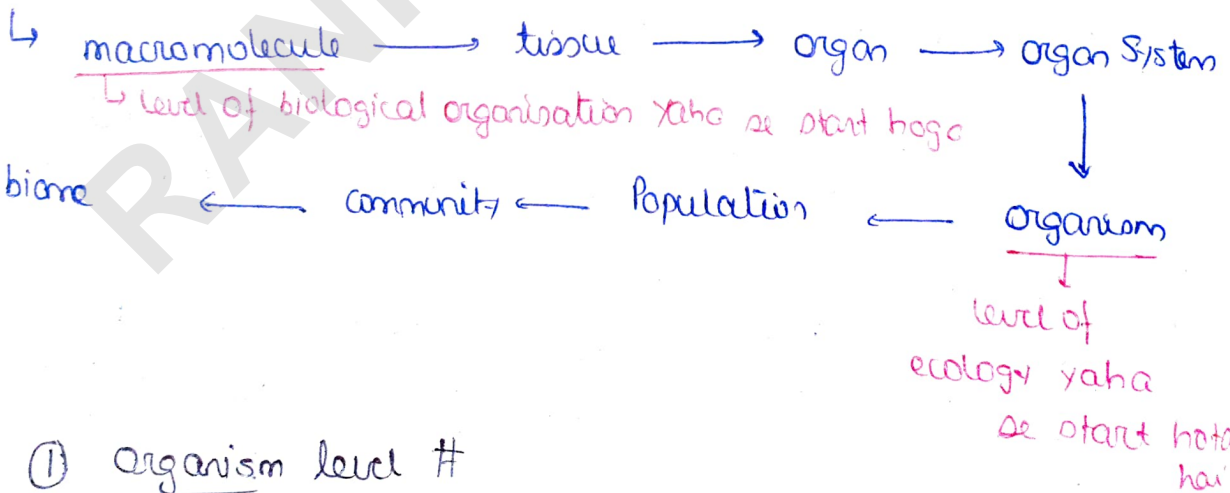 ↳ macromolecule → tissue → organ → organ System
↳ level of biological organisation yaha se start hoga
↓
biome ← community ← Population ← organism
↓
level of
ecology yaha
se start hota
hai
① Organism level #
RANK